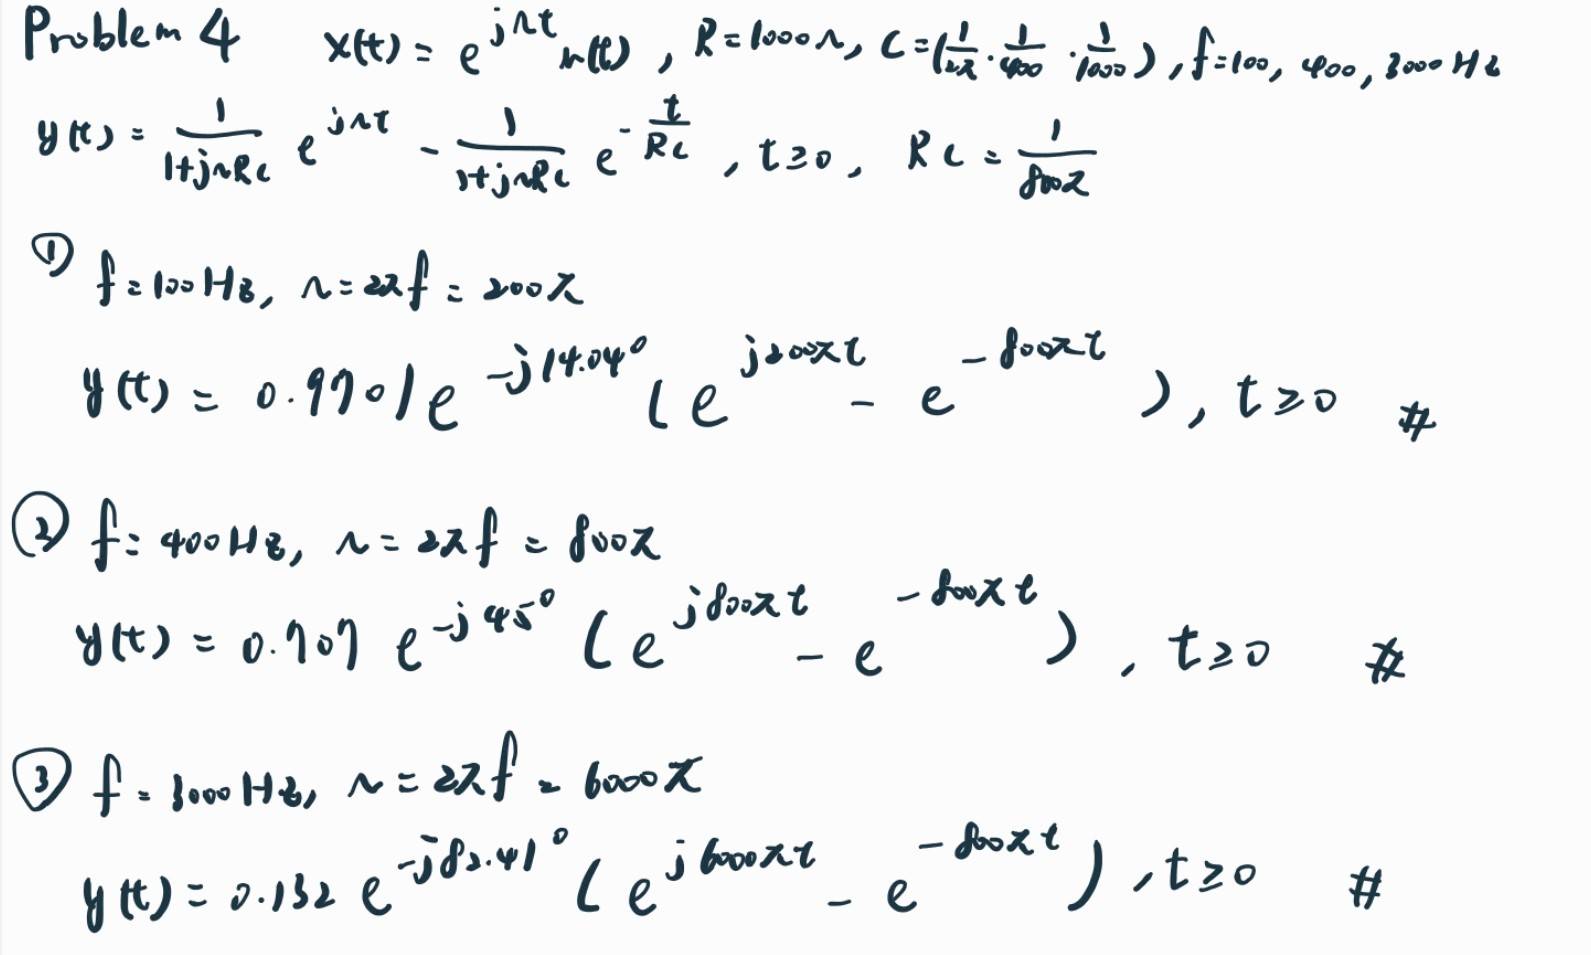 Problem 4 x(t) = e^{jΩt} u(t), R=1000Ω, C=(1/2π · 1/400 · 1/1000), f=100, 400, 3000 Hz
y(t) = 1/(1+jΩRC) e^{jΩt} - 1/(1+jΩRC) e^{-t/RC}, t≥0, RC = 1/800π
① f=100Hz, Ω=2πf=200π
y(t) = 0.9701 e^{-j14.04°} (e^{j200πt} - e^{-800πt}), t≥0 #
② f=400Hz, Ω=2πf=800π
y(t) = 0.707 e^{-j45°} (e^{j800πt} - e^{-800πt}), t≥0 #
③ f=3000Hz, Ω=2πf=6000π
y(t) = 0.132 e^{-j82.41°} (e^{j6000πt} - e^{-800πt}), t≥0 #